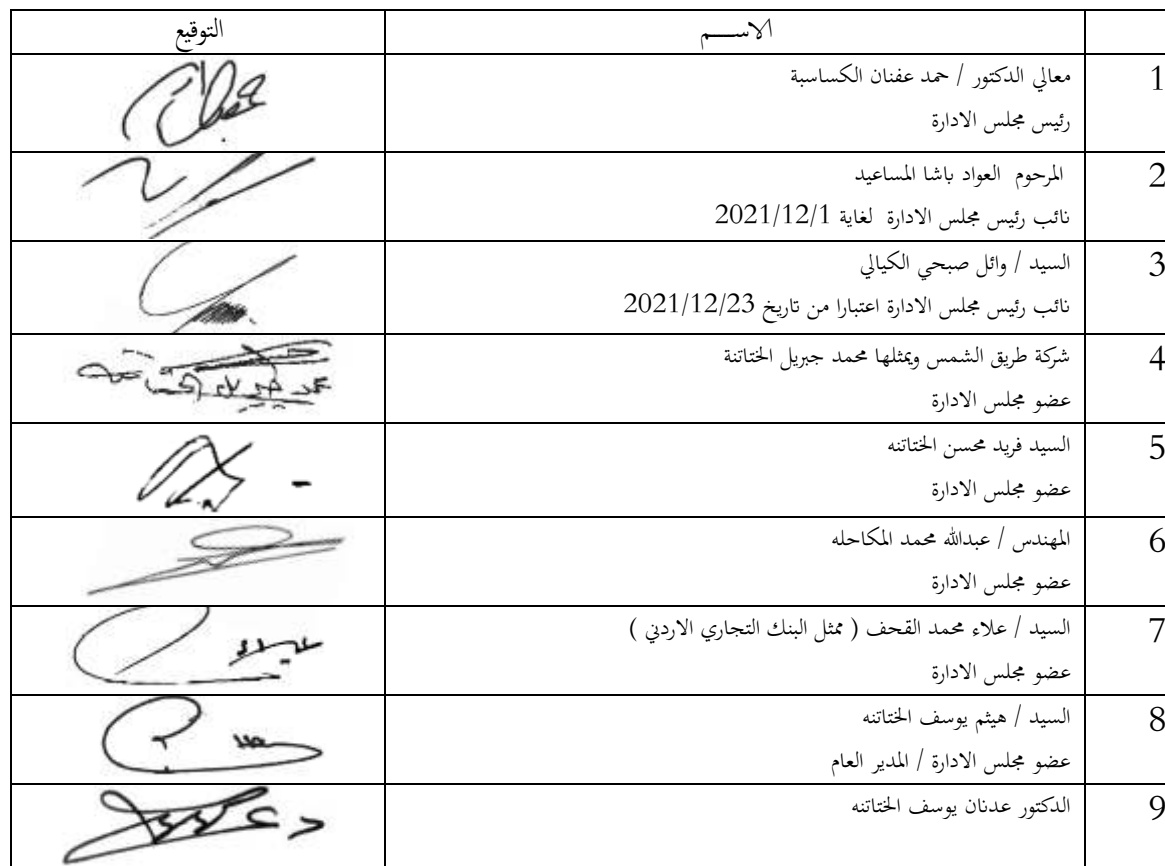 الاســـــم
التوقيع
1
معالي الدكتور / حمد عفنان الكساسبة
رئيس مجلس الادارة
2
المرحوم العواد باشا المساعيد
نائب رئيس مجلس الادارة لغاية 2021/12/1
3
السيد / وائل صبحي الكيالي
نائب رئيس مجلس الادارة اعتبارا من تاريخ 2021/12/23
4
شركة طريق الشمس ويمثلها محمد جبريل الختاتنة
عضو مجلس الادارة
5
السيد فريد محسن الختاتنه
عضو مجلس الادارة
6
المهندس / عبدالله محمد المكاحله
عضو مجلس الادارة
7
السيد / علاء محمد القحف ( ممثل البنك التجاري الاردني )
عضو مجلس الادارة
8
السيد / هيثم يوسف الختاتنه
عضو مجلس الادارة / المدير العام
9
الدكتور عدنان يوسف الختاتنه